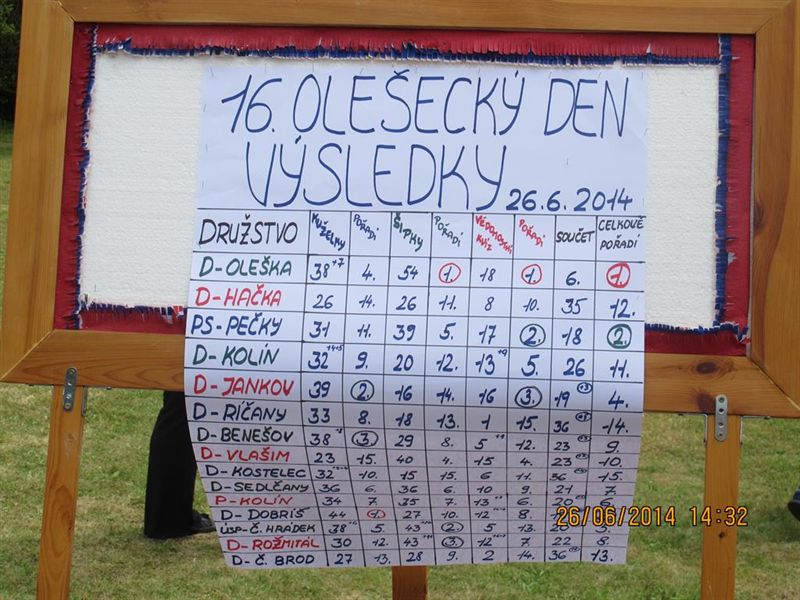 16. OLEŠECKÝ DEN
VÝSLEDKY 26.6.2014
DRUŽSTVO KUŽELKY POŘADÍ ŠIPKY POŘADÍ VĚDOMOSTNÍ KVIZ POŘADÍ SOUČET CELKOVÉ POŘADÍ
D-OLEŠKA 38+7 4. 54 1. 18 1. 6. 1.
D-HAČKA 26 14. 26 11. 8 10. 35 12.
PS-PEČKY 31 11. 39 5. 17 2. 18 2.
D-KOLÍN 32 9. 20 12. 13+9 5. 26 11.
D-JANKOV 39 2. 16 14. 16 3. 19 4.
D-ŘÍČANY 33 8. 18 13. 1 15. 36 14.
D-BENEŠOV 38 3. 29 8. 5 12. 23 9.
D-VLAŠIM 23 15. 40 4. 15 4. 23 10.
D-KOSTELEC 32 10. 15 15. 6 11. 36 15.
D-SEDLČANY 36 6. 36 6. 10 9. 21 7.
P-KOLÍN 34 7. 35 7. 13 6. 20
D-DOBŘÍŠ 44 1. 27 10. 12 8.
ÚSP-Č.HRÁDEK 38 5. 43 2. 5 13.
D-ROŽMITÁL 30 12. 43 3. 12 7. 22 8.
D-Č.BROD 27 13. 28 9. 2 14. 36 13.
26/06/2014 14:32